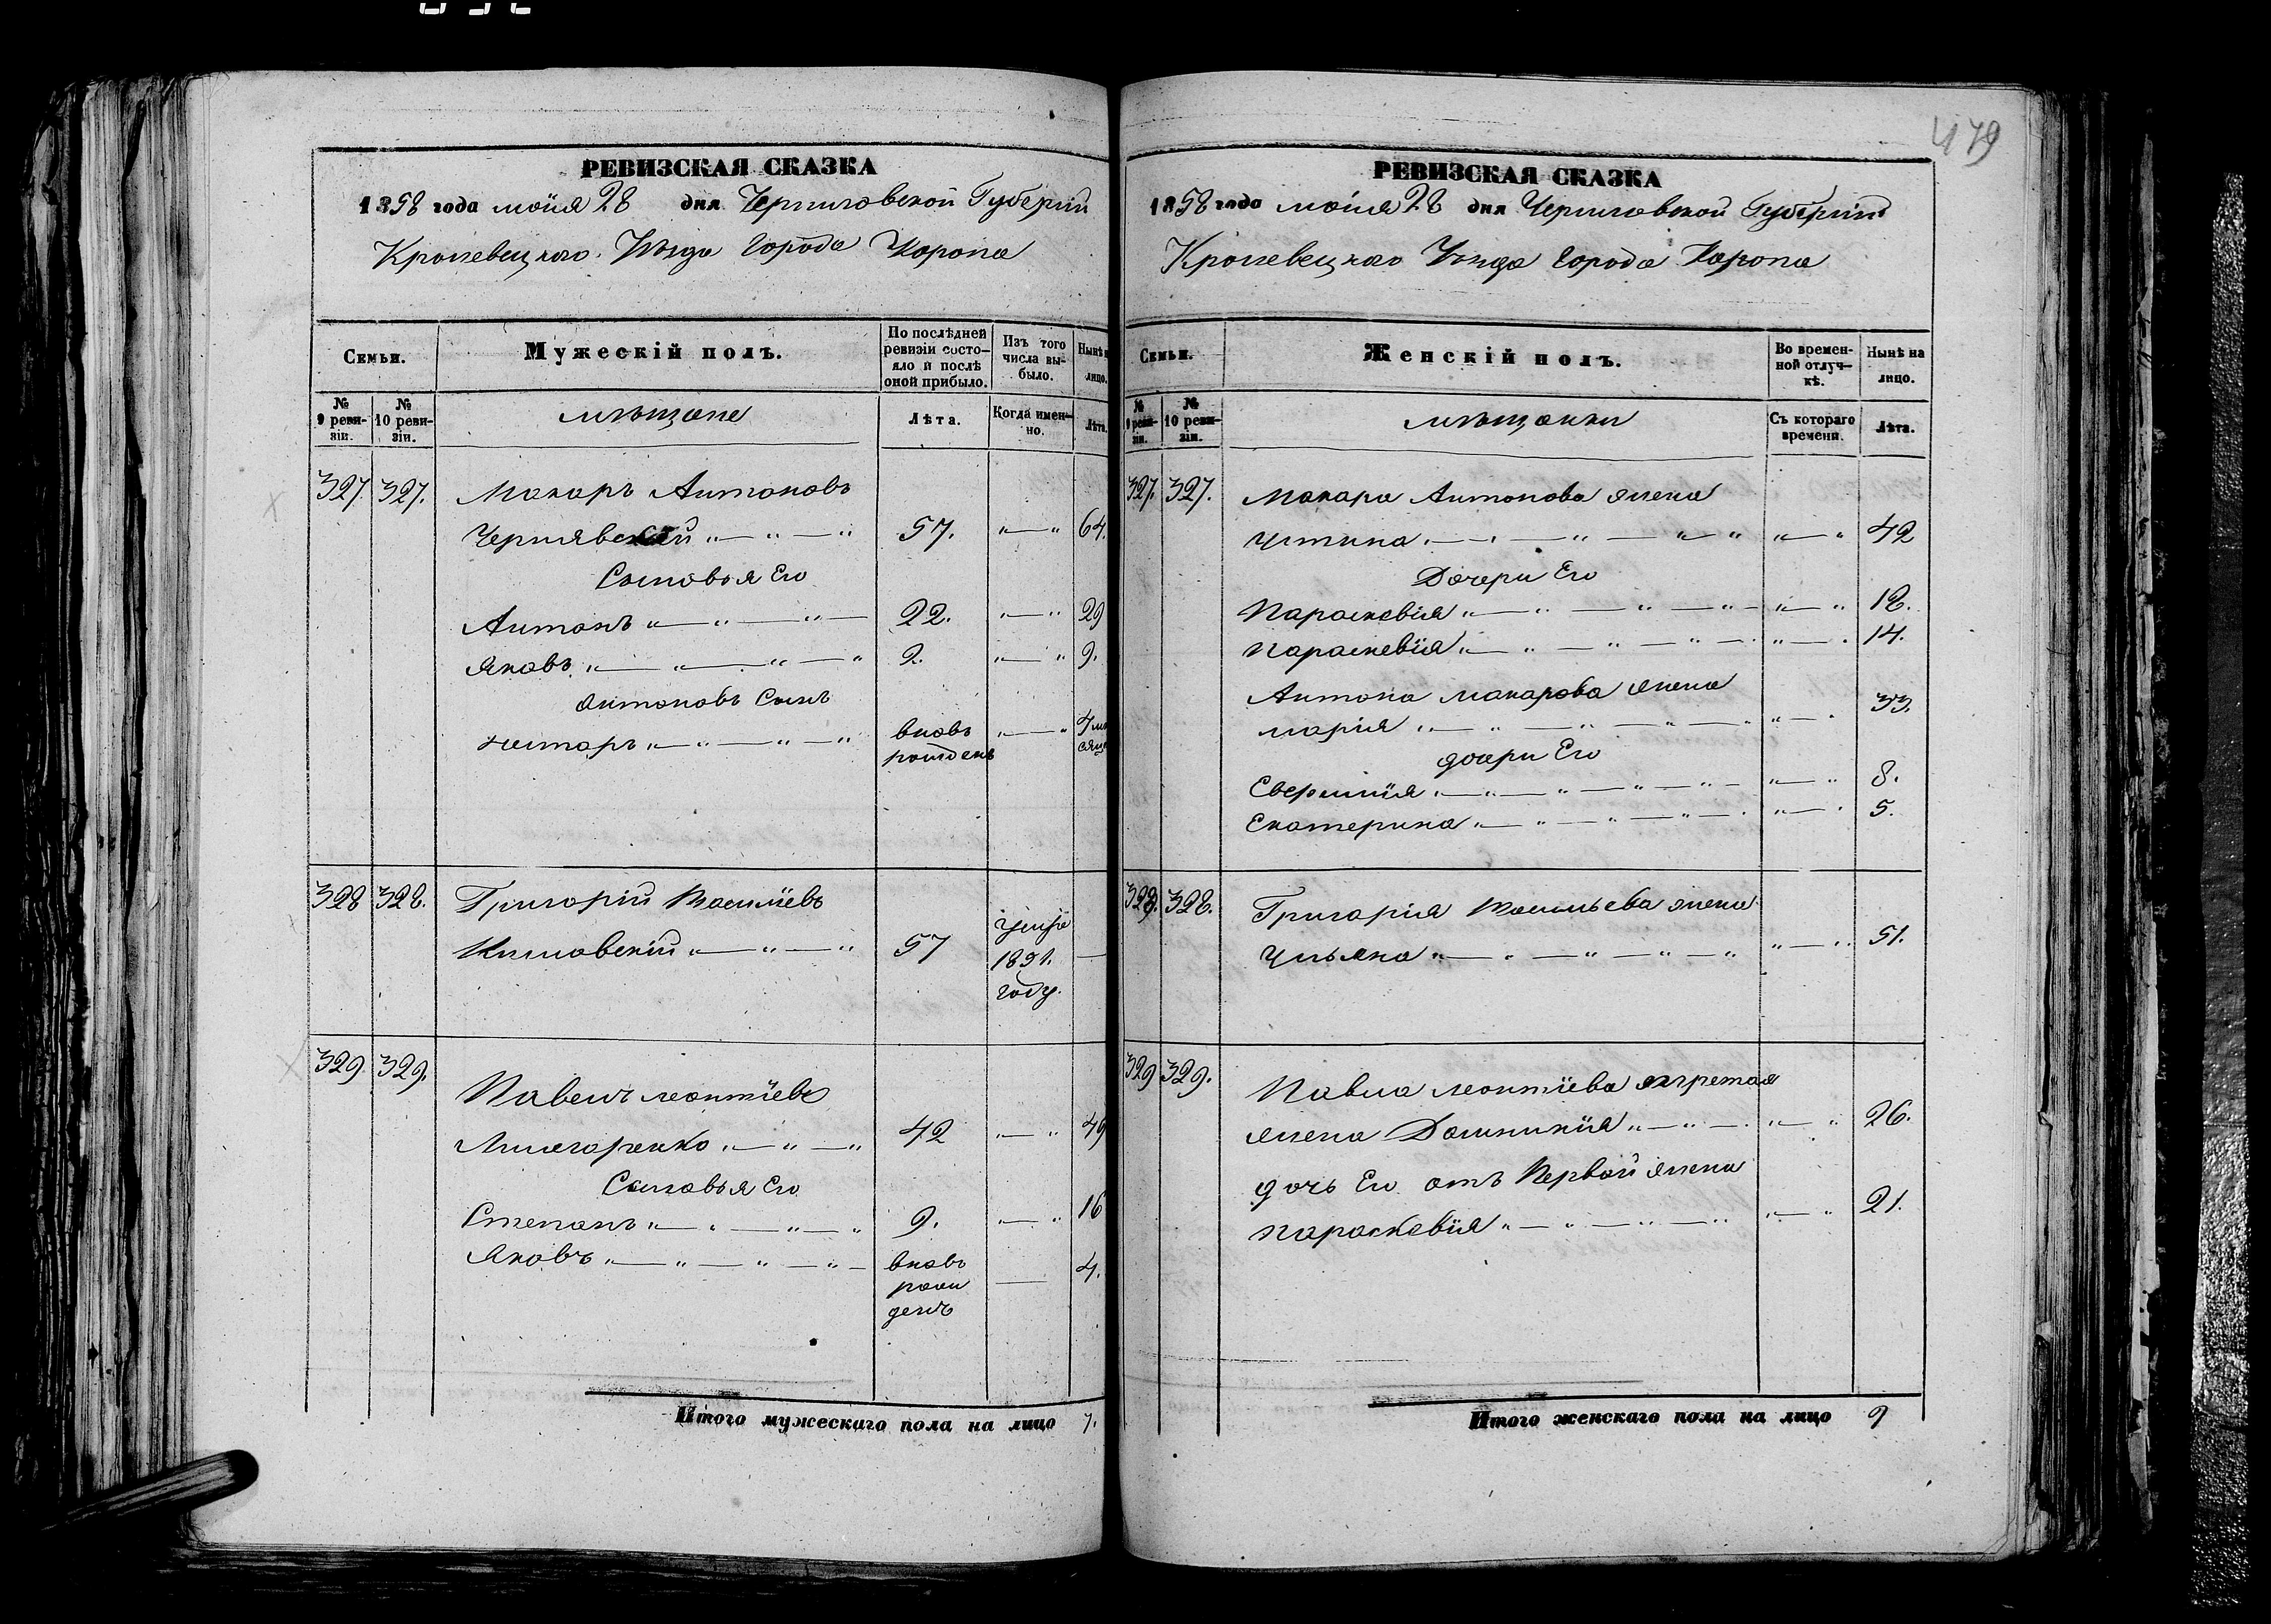 479
РЕВИЗСКАЯ СКАЗКА
1858 года маія 28 дня Черниговской Губерніи
Кролевецкаго Уѣзда Города Коропа
Семьи.
Мужескій полъ.
По послѣдней ревизіи состояло и послѣ оной прибыло.
Изъ того числа выбыло.
Нынѣ на лицо.
№ 9 ревизіи.
№ 10 ревизіи.
мѣщане
Лѣта.
Когда именно.
Лѣта.
327. 327. Макаръ Антоновъ
Чернявскій 57. 64.
Сыновья Его
Антонъ 22. 29
Яковъ 2. 9.
Антоновъ Сынъ
Нестаръ вновь рожденъ 4 ме сяца
328 328. Григорій Василіевъ
57 умре 1851. году.
329 329. Павелъ леонтіевъ
42 49
Сыновья Его
Степанъ 9. 16
Яковъ вновь рожденъ 4.
Итого мужескаго пола на лицо 7.
РЕВИЗСКАЯ СКАЗКА
1858 года маія 28 дня Черниговской Губерніи
Кролевецкаго Уѣзда Города Коропа
Семьи.
Женскій полъ.
Во временной отлучкѣ.
Нынѣ на лицо.
№ 9 ревизіи.
№ 10 ревизіи.
мѣщанки
Съ котораго времени.
Лѣта.
327. 327. Макара Антонова жена
Устина 42
Дочери Его
Параскевія 18.
Параскевія 14.
Антона макарова жена
марія 33.
дочери Его
8.
Екатерина 5.
328. 328. Григорія Васильева жена
Ульяна 51.
329 329. Павла леонтіева
жена Домникія 26.
дочь Его отъ Первой жены
параскевія 21.
Итого женскаго пола на лицо 9